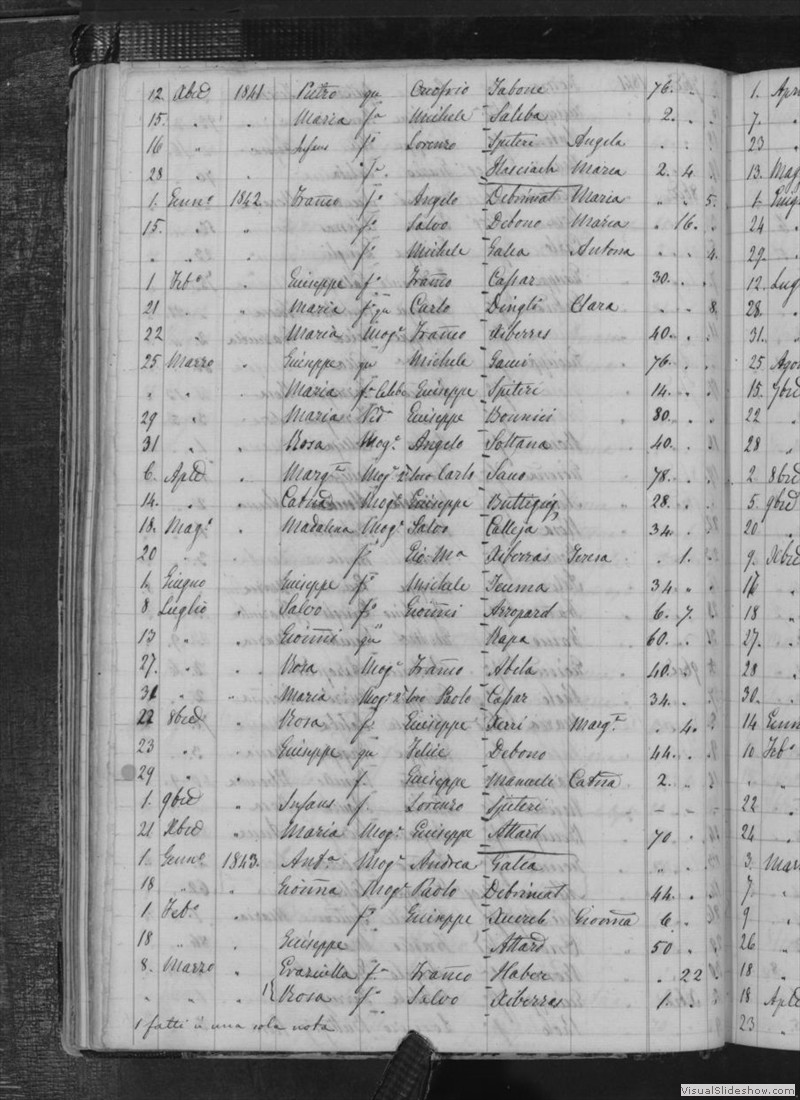 12 Xbre 1841 Pietro qu Onofrio Tabone 76.
15. " . Maria fa Michele Saliba 2.
16 " . Infans fo Lorenzo Spiteri Angela . .
28 " . fa Maria 2. 4.
1. Genno 1842 Franco fo Angelo Debrincat Maria " " 5.
15. " " fo Salvo Debono Maria " 16.
" " . fo Michele Galea Antona . . 4.
1 Febo . Giuseppe fo Franco Cassar 30.
21 " . Maria fa qu Carlo Dingli Clara . . 8.
22 " . Maria Moge Franco Xiberras 40.
25 Marzo . Giuseppe qu Michele Gauci 76.
" " . Maria fa Giuseppe Spiteri 14.
29 " . Maria Vida Giuseppe Bonnici 80.
31 " . Rosa Moge Angelo Soltana 40.
6. Aple . Margta Moge Carlo 78.
14. " . Catna Moge Giuseppe Buttigieg 28.
18. Mago . Madalena Moge Salvo Calleja 34.
20 " . fa Gio Ma Xiberras Teresa . 1.
1. Giugno Giuseppe fo Michele Teuma 34 "
8. Luglio . Salvo fo Gionni Azzopard 6. 7.
13 " . Gionni qu " Rapa 60.
27. " . Rosa Moge Franco Abela 40.
31 " " Maria Moge Paolo Cassar 34.
22 8bre . Rosa fa Giuseppe Xerri Margta . 4.
23 " . Giuseppe qu Felice Debono 44.
29 " . f. Giuseppe Catna 2.
1. 9bre " Infans f. Lorenzo Spiteri - - -
21 Xbre " Maria Moge Giuseppe Attard 70
1. Genno 1843. Anta Moge Andrea Galea " .
18 " . Gionna Moge Paolo Debrincat 44.
1 Febo . fa Giuseppe Xuereb Giovna 6 .
18 " . Giuseppe Attard 50 .
8. Marzo . Grazialla fa Franco Haber . 22
" " . 1 Rosa fa Salvo Xiberras 1.
1 fatti in una sola nota
1. Apr
7. "
23 "
13. Mag
1. Giug
24 "
29. "
12. Lug
28. "
31. "
25 Ago
15. 7bre
22 "
28 "
2 8bre
5. 9bre
20 "
9. Xbre
16
18 "
27. "
28 "
30. "
14 Genn
10. Feb
" "
22 "
24 "
3. Mar
7. "
9 "
26 "
18 "
18. Aple
23 "
VisualSlideshow.com